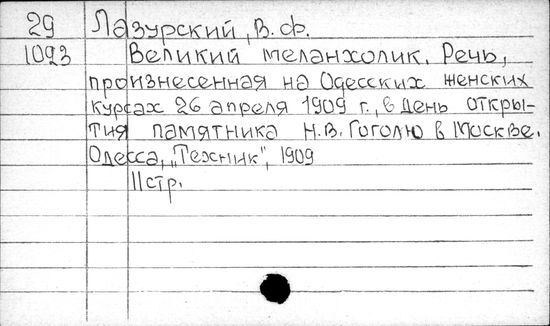 29 Лазурский, В. Ф.
1093 Великий меланхолик. Речь,
произнесенная на Одесских женских
курсах 26 апреля 1909 г., в день откры-
тия памятника Н.В. Гоголю в Москве.
Одесса, „Техник", 1909
11 стр.